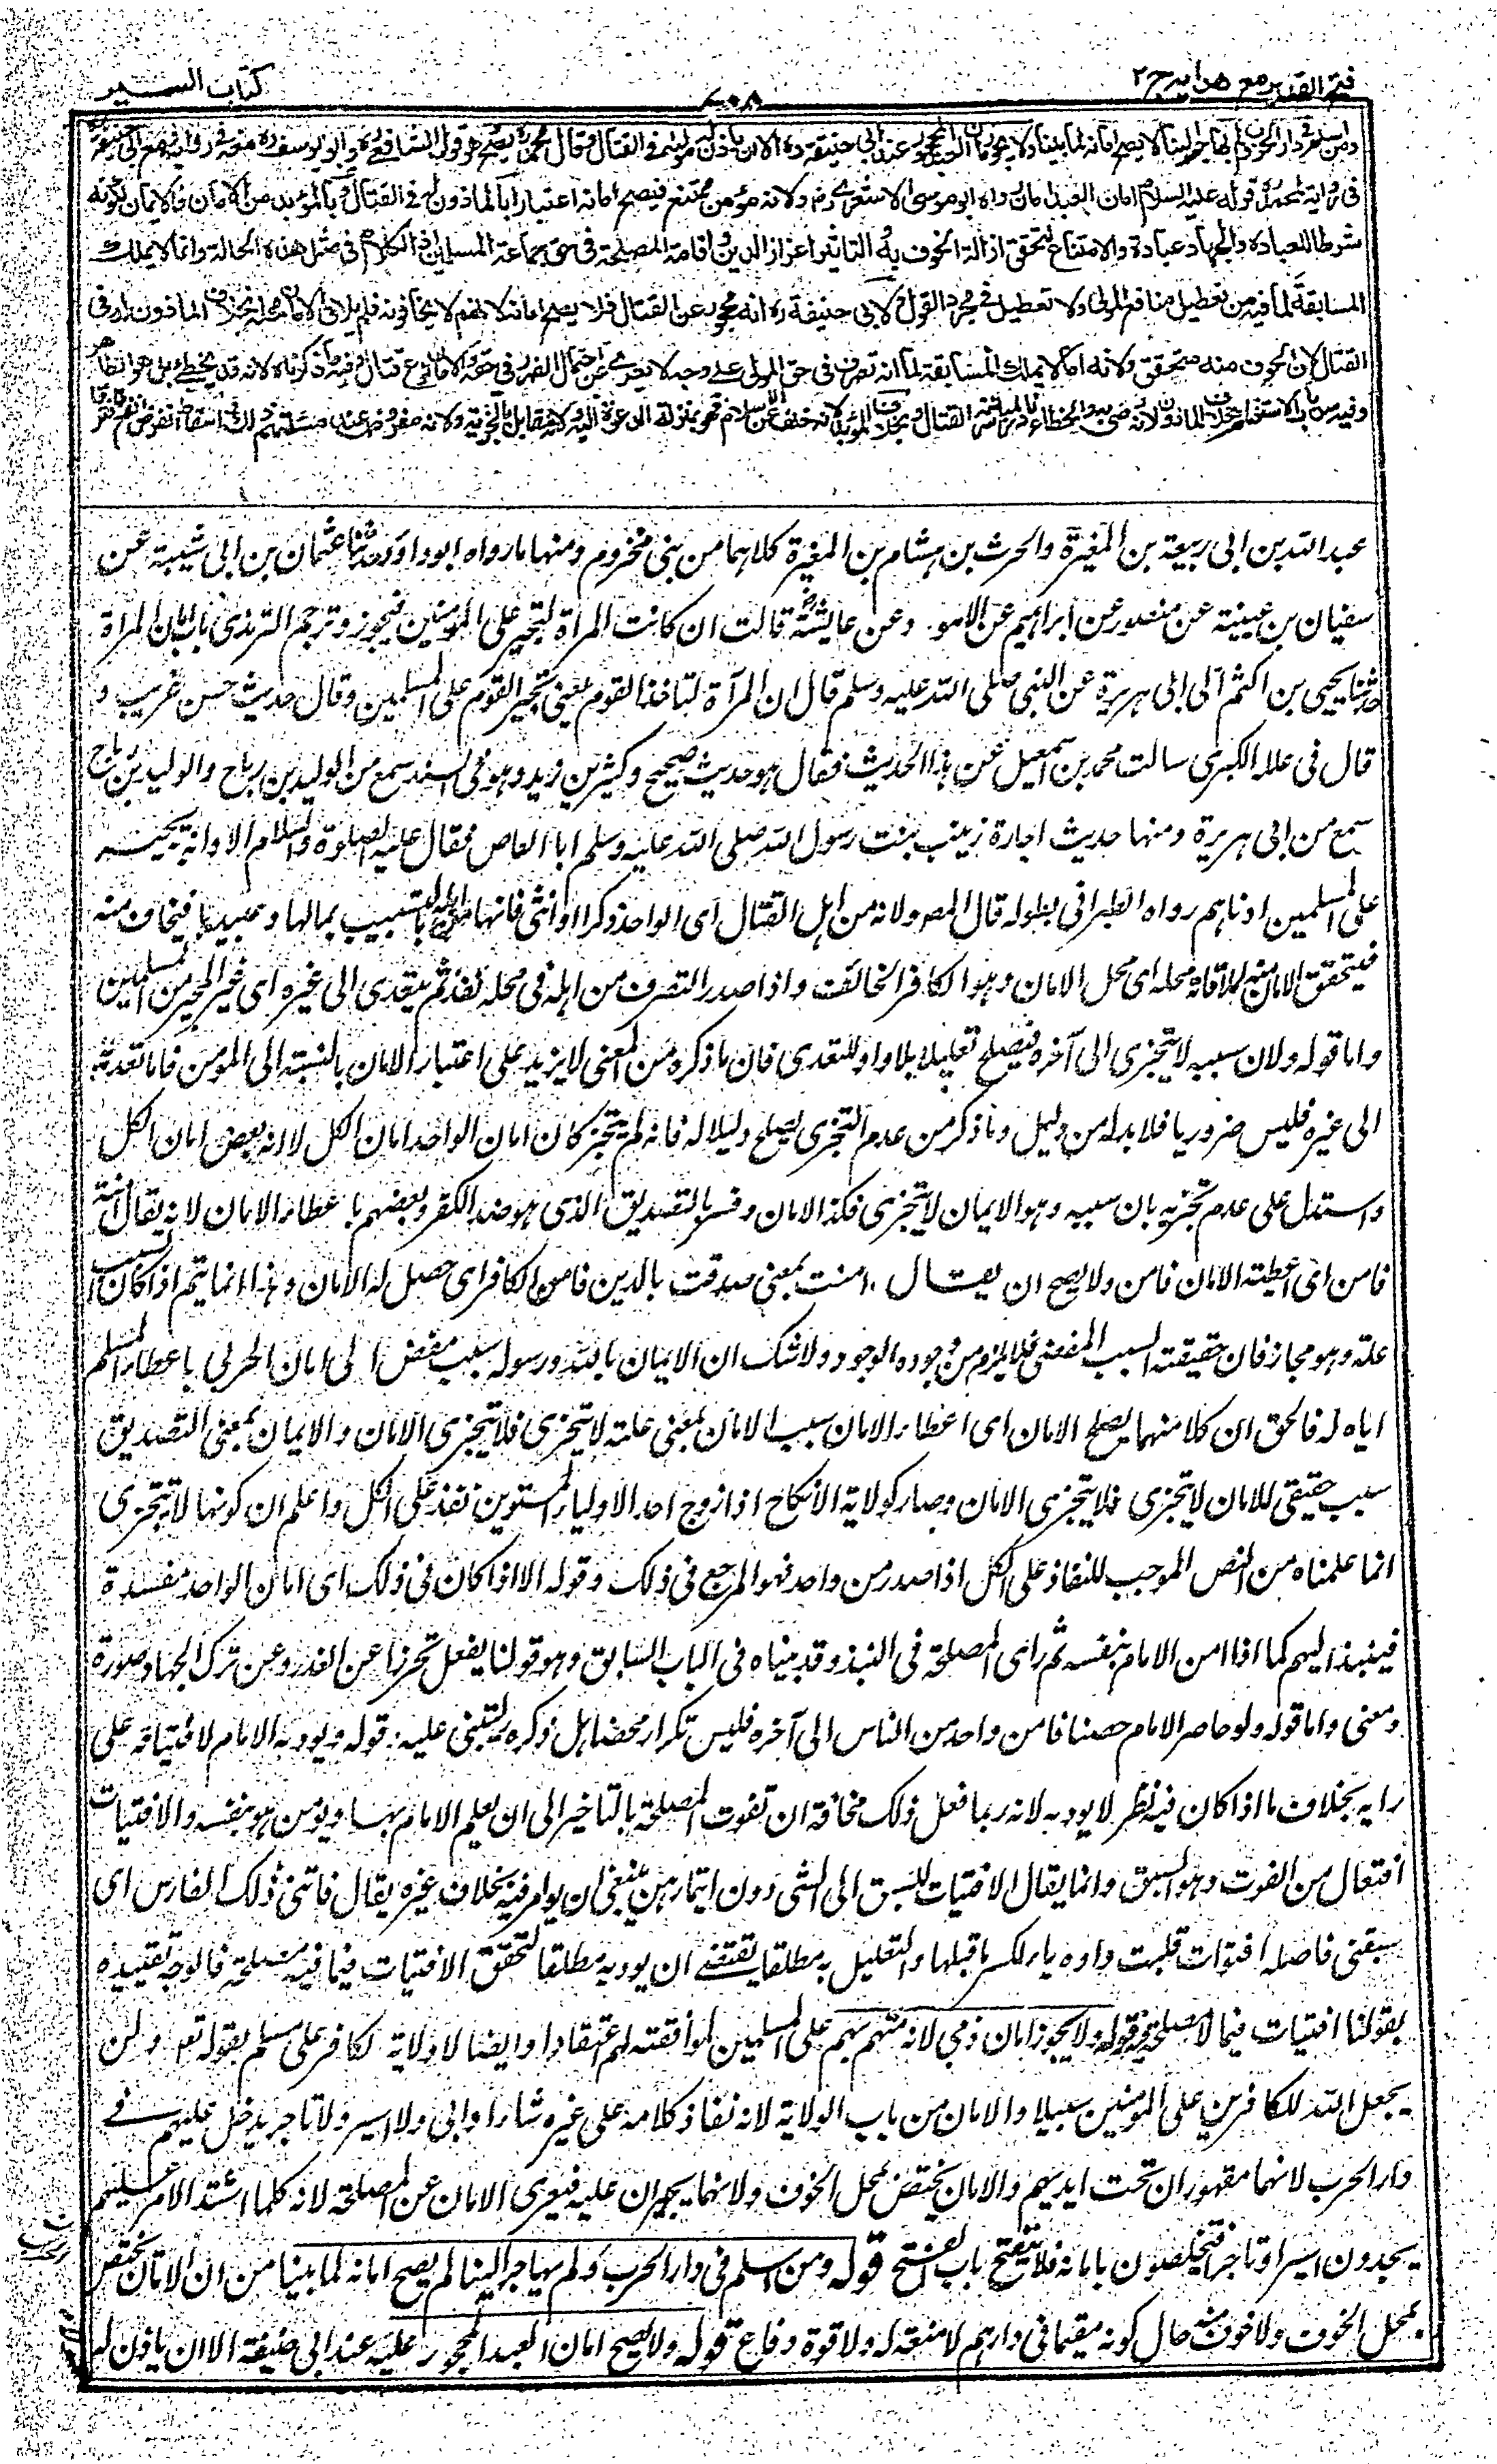 فتح القدیر مع هدایه ج ٢
٧٠٨
کتاب السیر
ومن اسلم فی دار الحرب ولم یهاجر الینا لا یصح امانه لما بینا ولا یجوز امان العبد المحجور عند ابی حنیفة ره الا ان یاذن له مولاه فی القتال وقال محمد ره یصح وهو قول الشافعی ره وابو یوسف ره معه فی روایة ومع ابی حنیفة ره
فی روایة لمحمد ره قوله علیه السلام امان العبد امان رواه ابو موسی الاشعری رض ولانه مؤمن ممتنع فیصح امانه اعتبارا بالماذون له فی القتال وبالمؤبد من الامان فالایمان لکونه
شرطا للعبادة والجهاد عبادة والامتناع لتحقق ازالة الخوف به والتاثیر اعزاز الدین واقامة المصلحة فی حق جماعة المسلمین اذ الکلام فی مثل هذه الحالة وانما لا یملک
المسابقة لما فیه من تعطیل منافع المولی ولا تعطیل فی مجرد القول ولابی حنیفة ره انه محجور عن القتال فلا یصح امانه لانهم لا یخافونه فلم یلاق الامان محله بخلاف الماذون له فی
القتال لان الخوف منه متحقق ولانه انما لا یملک المسابقة لما انه تصرف فی حق المولی علی وجه لا یعری عن احتمال الضرر فی حقه والامان نوع قتال وفیه ما ذکرناه لانه قد یخطئ بل هو الظاهر
وفیه سد باب الاستغنام بخلاف الماذون لانه رضی به والخطاء نادر لمباشرته القتال وبخلاف المؤبد لانه خلف عن الاسلام فهو بمنزلة الدعوة الیه ولانه مقابل بالجزیة ولانه مفروض عند مسئلتهم ذلک واسقاط الفرض نفع فافترقا
عبد الله بن ابی ربیعة بن المغیرة والحرث بن هشام بن المغیرة کلاهما من بنی مخزوم ومنها ما رواه ابو داود حدثنا عثمان بن ابی شیبة عن
سفیان بن عیینة عن منصور عن ابراهیم عن الاسود عن عایشة رض قالت ان کانت المراة لتجیر علی المؤمنین فیجوز وترجم الترمذی باب امان المراة
حدثنا یحیی بن اکثم الی ابی هریرة عن النبی صلی الله علیه وسلم قال ان المرأة لتاخذ القوم یعنی تجیر القوم علی المسلمین وقال حدیث حسن غریب و
قال فی علله الکبری سالت محمد بن اسمعیل عن هذا الحدیث فقال هو حدیث صحیح وکثیر بن زید وهو فی السند سمع من الولید بن رباح والولید بن رباح
سمع من ابی هریرة ومنها حدیث اجارة زینب بنت رسول الله صلی الله علیه وسلم ابا العاص فقال علیه الصلوة والسلام الا وانه یجیر
علی المسلمین ادناهم رواه الطبرانی بطوله قال المص ولانه من اهل القتال ای الواحد ذکرا او انثی فانها من اهله بالتسبیب بمالها وعبیدها فیخاف منه
فیتحقق الامان منه لملاقاته محله ای محل الامان وهو الکافر الخائف واذا صدر التصرف من اهله فی محله نفذ ثم یتعدی الی غیره ای غیر المجیر من المسلمین
واما قوله ولان سببه لا یتجزی الی آخره فیصلح تعلیلا بلا واو للتعدی فان ما ذکره من المعنی لا یزید علی اعتبار الامان بالنسبة الی المومن فاما تعدیته
الی غیره فلیس ضروریا فلا بد له من دلیل وما ذکر من عدم التجزی یصلح دلیلا له فانه لم یتجز کان امان الواحد امان الکل لا انه بعض امان الکل
واستدل علی عدم تجزیه بان سببه وهو الایمان لا یتجزی فکذا الامان وفسر بالتصدیق الذی هو ضد الکفر وبعضهم باعطاء الامان لانه یقال امنته
فامن ای اعطیته الامان فامن ولا یصح ان یقال امنت بمعنی صدقت بالدین فامن الکافر ای حصل له الامان وهذا انما یتم اذا کان السبب
علة وهو مجاز فان حقیقته السبب المفضی فلا یلزم من وجوده الوجود ولا شک ان الایمان بالله ورسوله سبب مفض الی امان الحربی باعطاء المسلم
ایاه له فالحق ان کلا منهما یصلح الامان ای اعطاء الامان سبب الامان بمعنی علته لا تتجزی فلا یتجزی الامان والایمان بمعنی التصدیق
سبب حقیقی للامان لا یتجزی فلا یتجزی الامان وصار کولایة الانکاح اذا زوج احد الاولیاء المستوین نفذ علی الکل واعلم ان کونها لا تتجزی
انما علمناه من النص الموجب للنفاذ علی الکل اذا صدر من واحد فهو المرجع فی ذلک وقوله الا اذا کان فی ذلک ای امان الواحد مفسدة
فینبذ الیهم کما اذا امن الامام بنفسه ثم رای المصلحة فی النبذ وقد بیناه فی الباب السابق وهو قولنا یفعل تحرزا عن الغدر وعن ترک الجهاد صورة
ومعنی واما قوله ولو حاصر الامام حصنا فامن واحد من الناس الی آخره فلیس تکرار محضا بل ذکره لیبتنی علیه قوله ویودبه الامام لافتیاته علی
رایه بخلاف ما اذا کان فیه نظر لا یودبه لانه ربما فعل ذلک مخافة ان تفوت المصلحة بالتاخیر الی ان یعلم الامام بها ویؤمن هو بنفسه والافتیات
افتعال من الفوت وهو السبق وانما یقال الافتیات للسبق الی الشی دون ایتمار من ینبغی ان یوامر فیه بخلاف غیره یقال فاتنی ذلک الفارس ای
سبقنی فاصله افتوات قلبت واوه یاء لکسر ما قبلها والتعلیل به مطلقا یقتضی ان یودبه مطلقا لتحقق الافتیات فیما فیه مصلحة فالوجه تقییده
بقولنا افتیات فیما لا مصلحة فیه قوله ولا یجوز امان ذمی لانه متهم بهم علی المسلمین لموافقته لهم اعتقادا وایضا لا ولایة لکافر علی مسلم بقوله تعه ولن
یجعل الله للکافرین علی المؤمنین سبیلا والامان من باب الولایة لانه نفاذ کلامه علی غیره شاء او ابی ولا اسیر ولا تاجر یدخل علیهم فی
دار الحرب لانهما مقهوران تحت ایدیهم والامان یختص بمحل الخوف ولانهما یجبران علیه فیعری الامان عن المصلحة لانه کلما اشتد الامر علیهم
یجدون اسیرا او تاجرا فیخلصون بامانه فلا ینفتح باب الفتح قوله ومن اسلم فی دار الحرب ولم یهاجر الینا لم یصح امانه لما بینا من ان الامان یختص
بمحل الخوف ولا خوف منه حال کونه مقیما فی دارهم لا منعة له ولا قوة دفاع قوله ولا یصح امان العبد المحجور علیه عند ابی حنیفة الا ان یاذن له